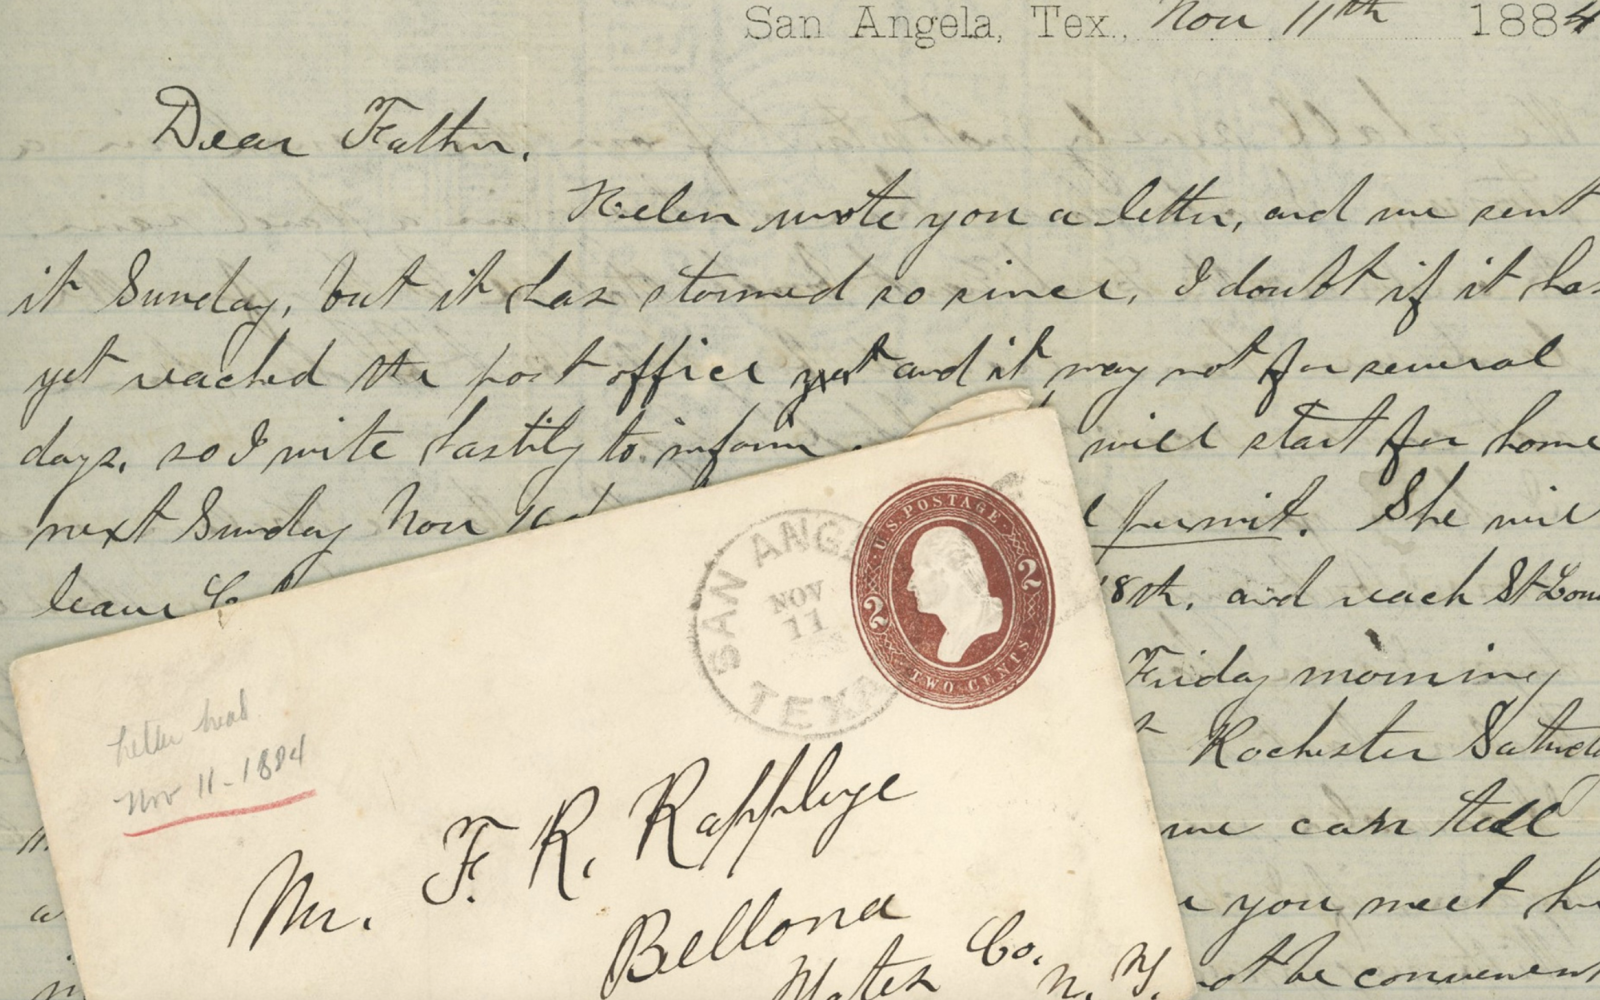 San Angela, Tex., Nov 11th 1884
Dear Father.
Helen wrote you a letter, and we sent
it Sunday, but it has stormed so since, I doubt if it has
yet reached the post office yet and it may not for several
days. so I write hastily to inform will start for home
next Sunday Nov permit. She will
leave 18th, and reach St Loui
Friday morning
Rochester Saturda
we can tell
you meet he
not be convenient
U.S. POSTAGE
2 2
TWO CENTS
SAN ANGE
NOV
11
TEXA
letter head
Nov 11-1884
Mr. F. R. Rappleye
Bellona
Yates Co.
N. Y.